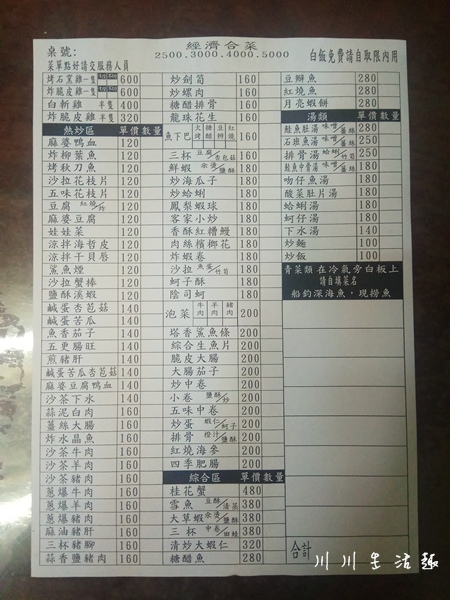 桌號:
經濟合菜
2500.3000.4000.5000
白飯免費請自取限內用
菜單點好請交服務人員
烤石窯雞一隻 600
炸脆皮雞一隻 600
白斬雞 半隻 400
炸脆皮雞 半隻 320
熱炒區 單價 數量
麻婆鴨血 120
炸柳葉魚 120
烤秋刀魚 120
沙拉花枝片 120
五味花枝片 120
豆腐 紅燒/炸 120
麻婆豆腐 120
娃娃菜 120
涼拌海哲皮 120
涼拌干貝唇 120
鯊魚煙 120
沙拉蟹棒 120
鹽酥溪蝦 120
鹹蛋杏苞菇 140
鹹蛋苦瓜 140
魚香茄子 140
五更腸旺 140
煎豬肝 140
鹹蛋苦瓜杏苞菇 140
麻婆豆腐鴨血 140
沙茶下水 140
蒜泥白肉 160
薑絲大腸 160
炸水晶魚 160
沙茶牛肉 160
沙茶羊肉 160
沙茶豬肉 160
蔥爆牛肉 160
蔥爆羊肉 160
蔥爆豬肉 160
麻油豬肝 160
三杯豬腳 160
蒜香鹽豬肉 160
炒劍筍 160
炒螺肉 160
糖醋排骨 160
龍珠花生 160
魚下巴 火烤 糖醋 豆瓣 紅燒 160
三杯 豆腐/杏包菇 160
鮮蝦 160
炒海瓜子 160
炒蛤蜊 160
鳳梨蝦球 160
客家小炒 160
香酥紅糟鰻 160
肉絲檳榔花 160
炸蝦卷 160
沙拉 魚蛋/竹筍 160
蚵子酥 160
陰司蚵 160
泡菜 牛肉 羊肉 豬肉 200
塔香鯊魚條 200
綜合生魚片 200
脆皮大腸 200
大腸茄子 200
炒中卷 200
小卷 鹽酥/炒 200
五味中卷 200
炒蛋 蝦仁/蚵子 200
排骨 橙汁/鹽酥 200
紅燒海參 200
四季肥腸 200
綜合區 單價 數量
桂花蟹 480
雪魚 豆酥/清蒸 380
大草蝦 鹽酥 380
三杯 中卷/田蛙 380
清炒大蝦仁 320
糖醋魚 280
豆瓣魚 280
紅燒魚 280
月亮蝦餅 280
湯類 單價 數量
鮭魚肚湯 味噌/薑絲 280
石斑魚湯 味噌/薑絲 250
排骨湯 蛤蜊/竹筍 160
鮭魚中骨湯 味噌/薑絲 160
吻仔魚湯 160
酸菜肚片湯 160
蛤蜊湯 160
蚵仔湯 160
下水湯 140
炒麵 100
炒飯 100
青菜類 在冷氣旁白板上
請自填菜名
船釣深海魚.現撈魚
合計
川川生活趣